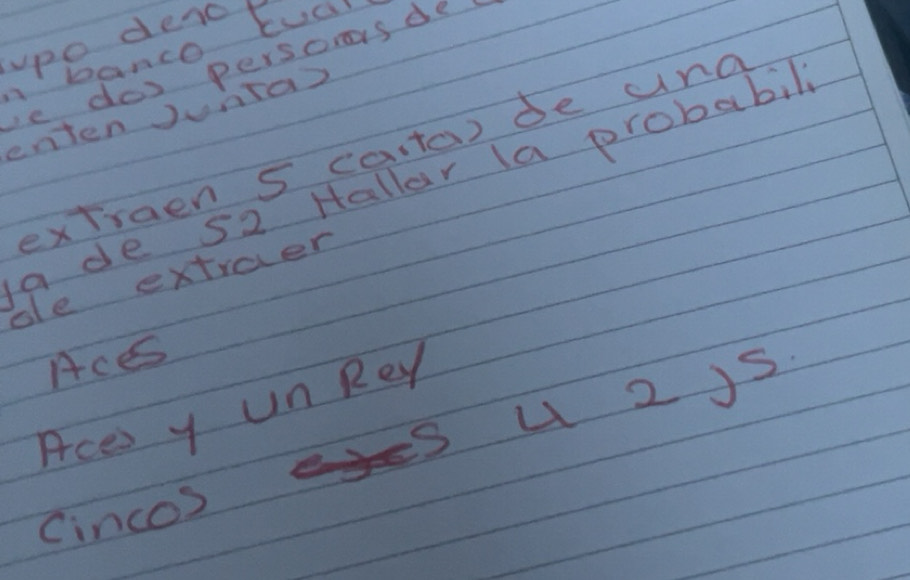 deno
n banco
dos personas de
enten juntas
extraen 5 cartas de una
ja de 52 Hallar la probabili
de extraer
Aces
Aces y un Rey
Cincos s u 2 js.